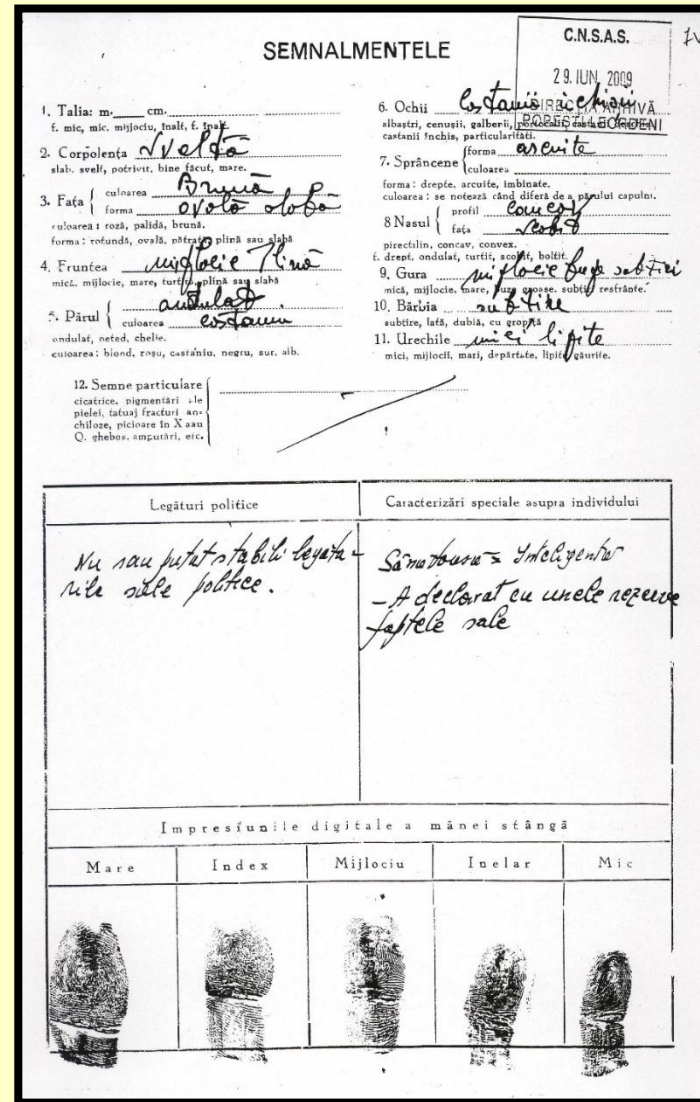 SEMNALMENTELE
C.N.S.A.S.
29. IUN. 2009
DIRECȚIA ARHIVĂ
POPEȘTI LEORDENI
1. Talia: m. cm.
f. mic, mic. mijlociu, înalt, f. înalt.
2. Corpolența Sveltă
slab, svelt, potrivit, bine făcut, mare.
3. Fața { culoarea Brună
forma ovală slabă
culoarea: roză, palidă, brună.
forma: rotundă, ovală, pătrată, plină sau slabă
4. Fruntea mijlocie Plină
mică, mijlocie, mare, turtită, plină sau slabă
5. Părul { ondulat
culoarea castaniu
ondulat, neted, chelie.
culoarea: blond, roșu, castaniu, negru, sur, alb.
6. Ochii Castanii închiși
albaștri, cenușii, galbenii, portocalii, castanii
castanii închis, particularități.
7. Sprâncene { forma arcuite
culoarea
forma: drepte, arcuite, îmbinate.
culoarea: se notează când diferă de a părului capului.
8 Nasul { profil concav
fața scobit
pirectilin, concav, convex.
f. drept, ondulat, turtit, scobit, boltit.
9. Gura mijlocie buze subțiri
mică, mijlocie, mare, buze groase, subțiri, resfrânte.
10. Bărbia subțire
subțire, lată, dublă, cu gropiță
11. Urechile mici lipite
mici, mijlocii, mari, depărtate, lipite, găurite.
12. Semne particulare
cicatrice, pigmentări ale
pielei, tatuaj fracturi an-
chiloze, picioare în X sau
O, ghebos, amputări, etc.
Legături politice
Caracterizări speciale asupra individului
Nu sau putut stabili legatu-
rile sale politice.
Sănătoasă = Inteligentă
- A declarat cu unele rezerve
faptele sale
Impresiunile digitale a mânei stângă
Mare Index Mijlociu Inelar Mic